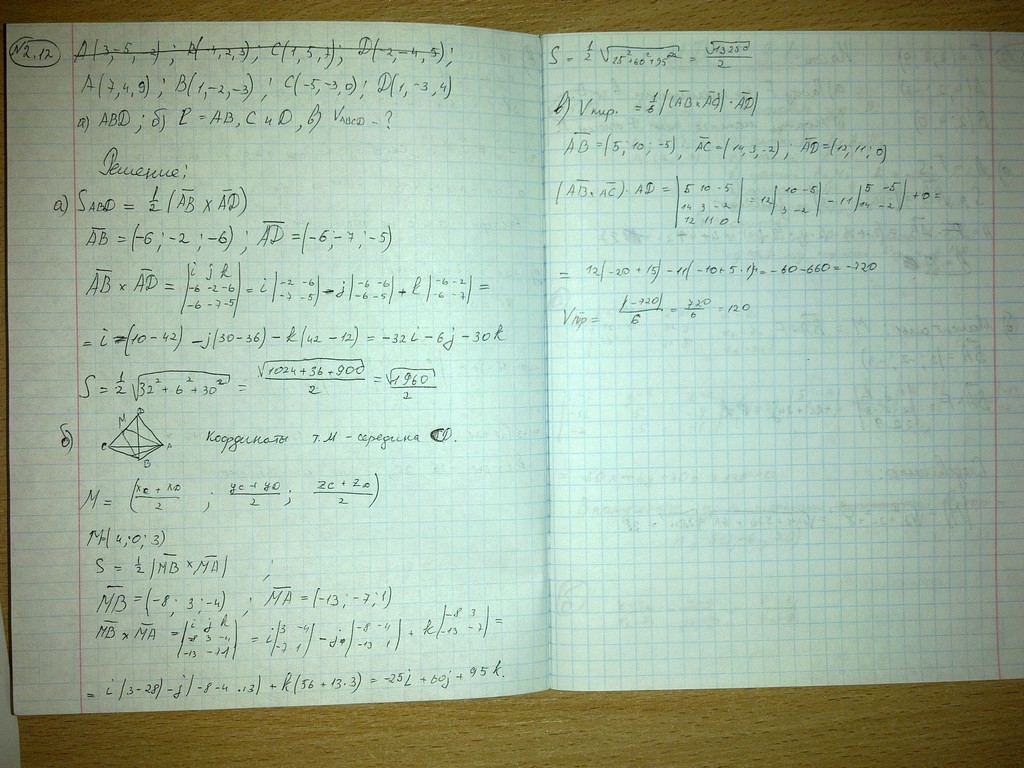 №2.12
A(3,-5,-2); B(-4,2,3); C(1,5,3); D(-2,-4,5);
A(7,4,9); B(1,-2,-3); C(-5,-3,0); D(1,-3,4)
а) ABD; б) P = AB, C и D, в) V_ABCD - ?
Решение:
а) S_ABD = 1/2 (AB x AD)
AB = (-6; -2; -6); AD = (-6; -7; -5)
AB x AD = |i j k; -6 -2 -6; -6 -7 -5| = i |-2 -6; -7 -5| - j |-6 -6; -6 -5| + k |-6 -2; -6 -7| =
= i (10-42) - j(30-36) - k(42-12) = -32i - 6j - 30k
S = 1/2 √(32² + 6² + 30²) = √(1024+36+900)/2 = √1960/2
б) M D C A B Координаты т. M - середина CD.
M = (xc + xD/2 ; yc + yD/2 ; zc + zD/2)
M(4; 0; 3)
S = 1/2 |MB x MA| ;
MB = (-8; 3; -4) ; MA = (-13; -7; 1)
MB x MA = |i j k; -8 3 -4; -13 -7 1| = i |3 -4; -7 1| - j |-8 -4; -13 1| + k |-8 3; -13 -7| =
= i (3-28) - j(-8-4·13) + k(56+13·3) = -25i + 60j + 95k.
S = 1/2 √(25²+60²+95²) = √13250/2
в) V пир. = 1/6 |(AB x AC) · AD|
AB = (5; 10; -5), AC = (14, 3, -2); AD = (12; 11; 0)
(AB x AC) · AD = |5 10 -5; 14 3 -2; 12 11 0| = 12 |10 -5; 3 -2| - 11 |5 -5; 14 -2| + 0 =
= 12(-20+15) - 11(-10+5·14) = -60-660 = -720
V пир = |-720|/6 = 720/6 = 120